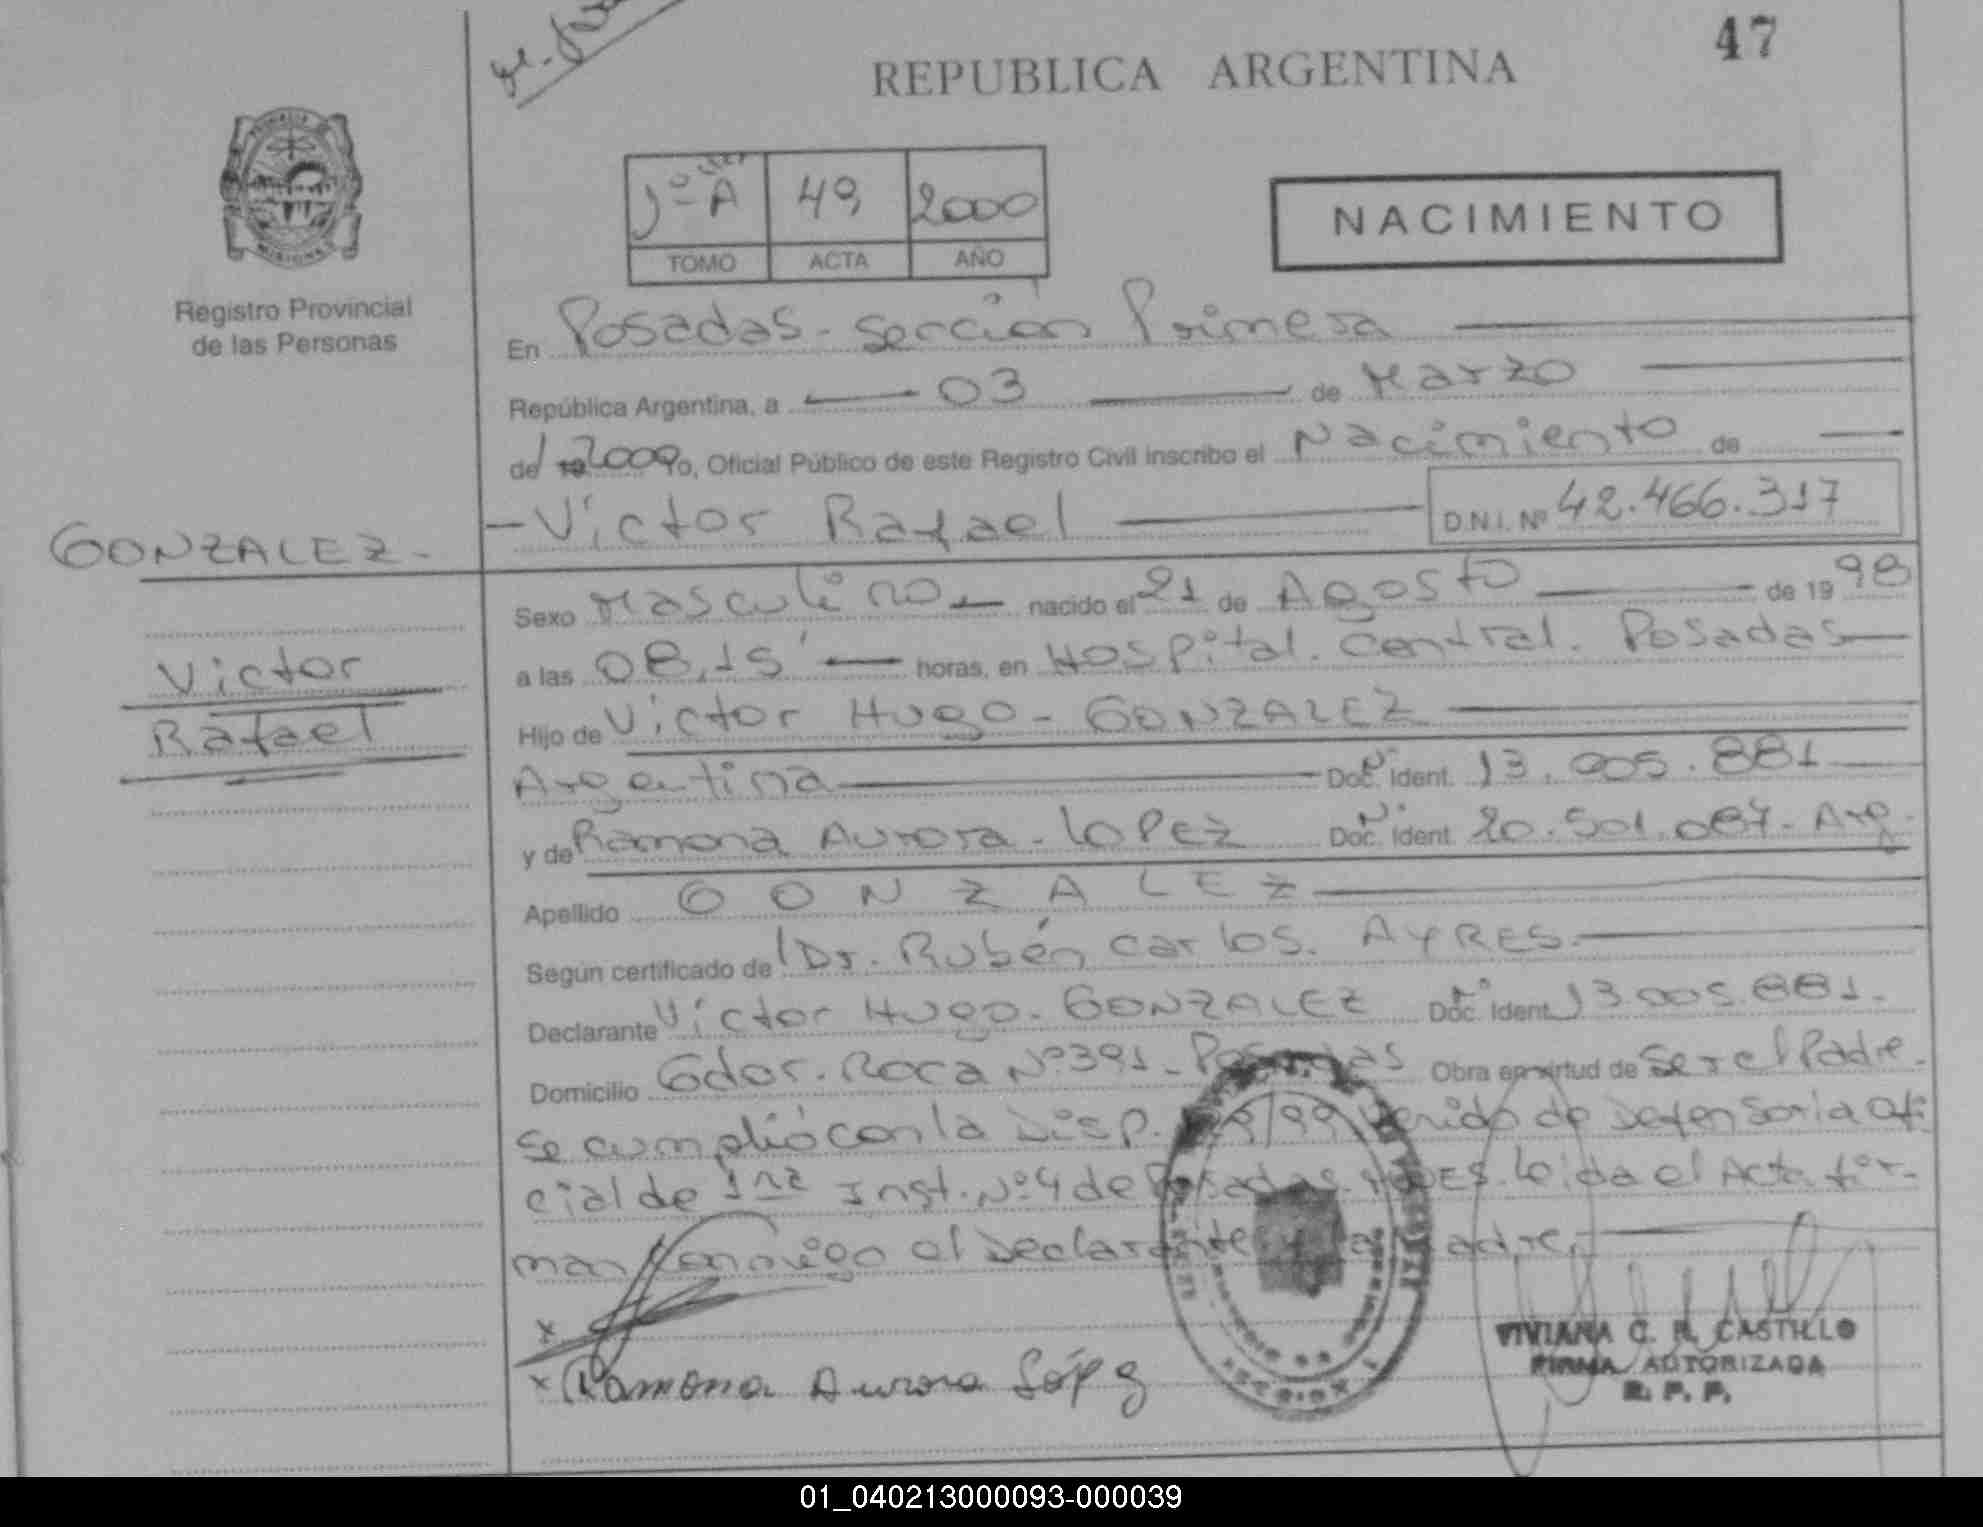 47
REPUBLICA ARGENTINA
1º A 49 2000
TOMO ACTA AÑO
NACIMIENTO
Registro Provincial
de las Personas
En Posadas - sección Primera
República Argentina, a 03 de Marzo
del 2000 yo, Oficial Público de este Registro Civil inscribo el Nacimiento de
- Victor Rafael D.N.I. Nº 42.466.317
GONZALEZ -
Victor
Rafael
Sexo Masculino nacido el 21 de Agosto de 1998
a las 08,15' horas, en Hospital. Central. Posadas
Hijo de Victor Hugo - GONZALEZ
Argentina Doc. Nº Ident. 13.005.881
y de Ramona Aurora - LOPEZ Doc. Nº Ident. 20.501.087 - Arg.
Apellido GONZALEZ
Según certificado del Dr. Rubén Carlos. AYRES.
Declarante Victor Hugo - GONZALEZ Doc. Nº Ident. 13.005.881.
Domicilio Gdor. Roca Nº 391 - Posadas Obra en virtud de Ser el Padre.
Se cumplió con la Disp. /99 de Defensoria Ofi
cial de 1ra Inst. Nº 4 de Posadas. Leida el Acta fir-
man conmigo el Declarante y la Madre.
x
x Ramona Aurora López
VIVIANA C. R. CASTILLO
FIRMA AUTORIZADA
R. P. P.
01_040213000093-000039